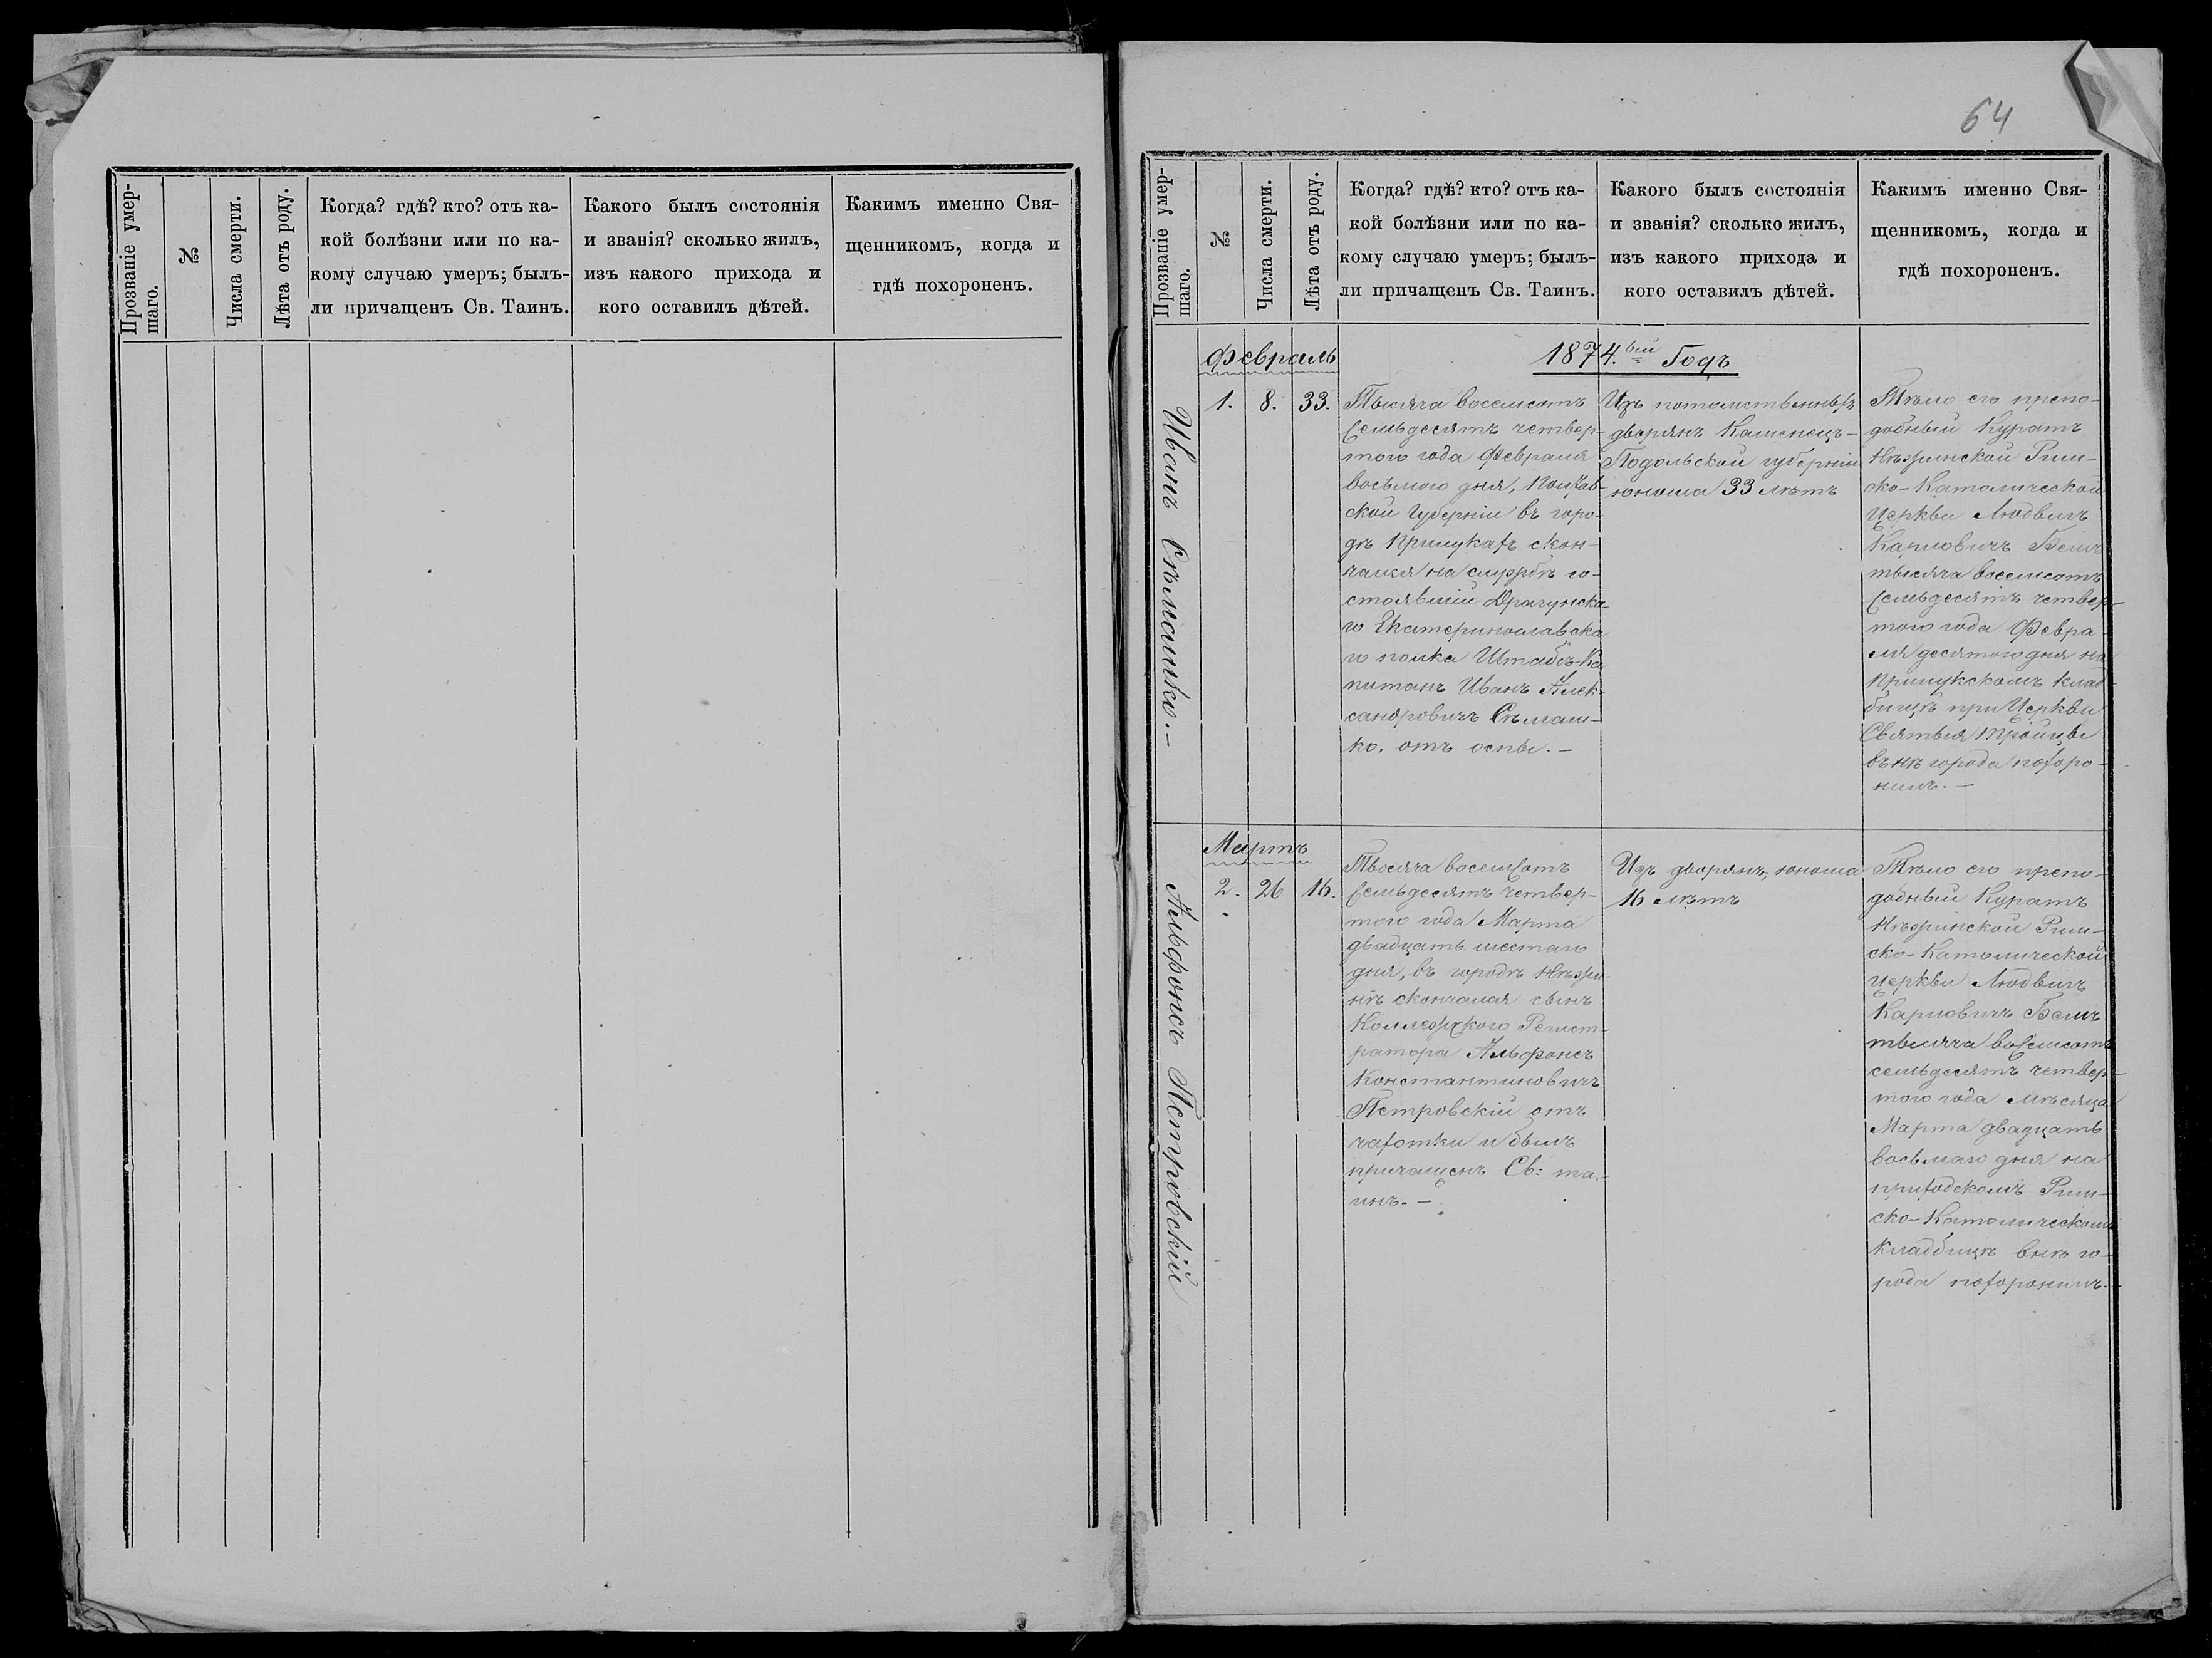 Прозваніе умер-
шаго.
№
Числа смерти.
Лѣта отъ роду.
Когда? гдѣ? кто? отъ ка-
кой болѣзни или по ка-
кому случаю умеръ; былъ-
ли причащенъ Св. Таинъ.
Какого былъ состоянія
и званія? сколько жилъ,
изъ какого прихода и
кого оставилъ дѣтей.
Какимъ именно Свя-
щенникомъ, когда и
гдѣ похороненъ.
64
Прозваніе умер-
шаго.
№
Числа смерти.
Лѣта отъ роду.
Когда? гдѣ? кто? отъ ка-
кой болѣзни или по ка-
кому случаю умеръ; былъ-
ли причащенъ Св. Таинъ.
Какого былъ состоянія
и званія? сколько жилъ,
изъ какого прихода и
кого оставилъ дѣтей.
Какимъ именно Свя-
щенникомъ, когда и
гдѣ похороненъ.
Февраль
1874.ый Годъ
Иванъ Сѣмашко.-
1.
8.
33.
Тысяча восемсотъ
семьдесятъ четвер-
того года Февраля
восьмого дня, Полтав-
ской Губерніи въ горо-
дѣ Прилукахъ скон-
чался на службѣ со-
стоявшій Драгунска-
го Екатеринославска-
го полка Штабсъ-Ка
питанъ Иванъ Алек-
сандровичъ Сѣмаш-
ко, отъ оспы.-
Изъ потомственныхъ
дворянъ Каменецъ-
Подольской губерніи
юноша 33 лѣтъ
Тѣло его препо-
добный Куратъ
Нѣжинской Рим-
ско-Католической
Церкви Людвигъ
Карловичъ
тысяча восемсотъ
семьдесятъ четвер-
того года Февра-
ля десятого дня на
Прилукскомъ клад-
бищѣ при Церкви
Святыя Тройцы
внѣ города похоро-
нилъ.-
Мартъ
Альфонсъ Петровскій
2.
26
16.
Тысяча восемсотъ
семьдесятъ четвер-
того года Марта
двадцать шестаго
дня, въ городѣ Нѣжи-
нѣ скончался сынъ
Коллежского Регист-
ратора Альфонсъ
Константиновичъ
Петровскій отъ
чахотки и былъ
причащенъ Св: та-
инъ.-
Изъ дворянъ, юноша
16 лѣтъ
Тѣло его препо-
добный Куратъ
Нѣжинской Рим-
ско-Католической
церкви Людвигъ
Карловичъ
тысяча восемсотъ
семьдесятъ четвер-
того года мѣсяца
Марта двадцать
восьмаго дня на
приходскомъ Рим-
ско-Католическомъ
Кладбищѣ внѣ го-
рода похоронилъ.-